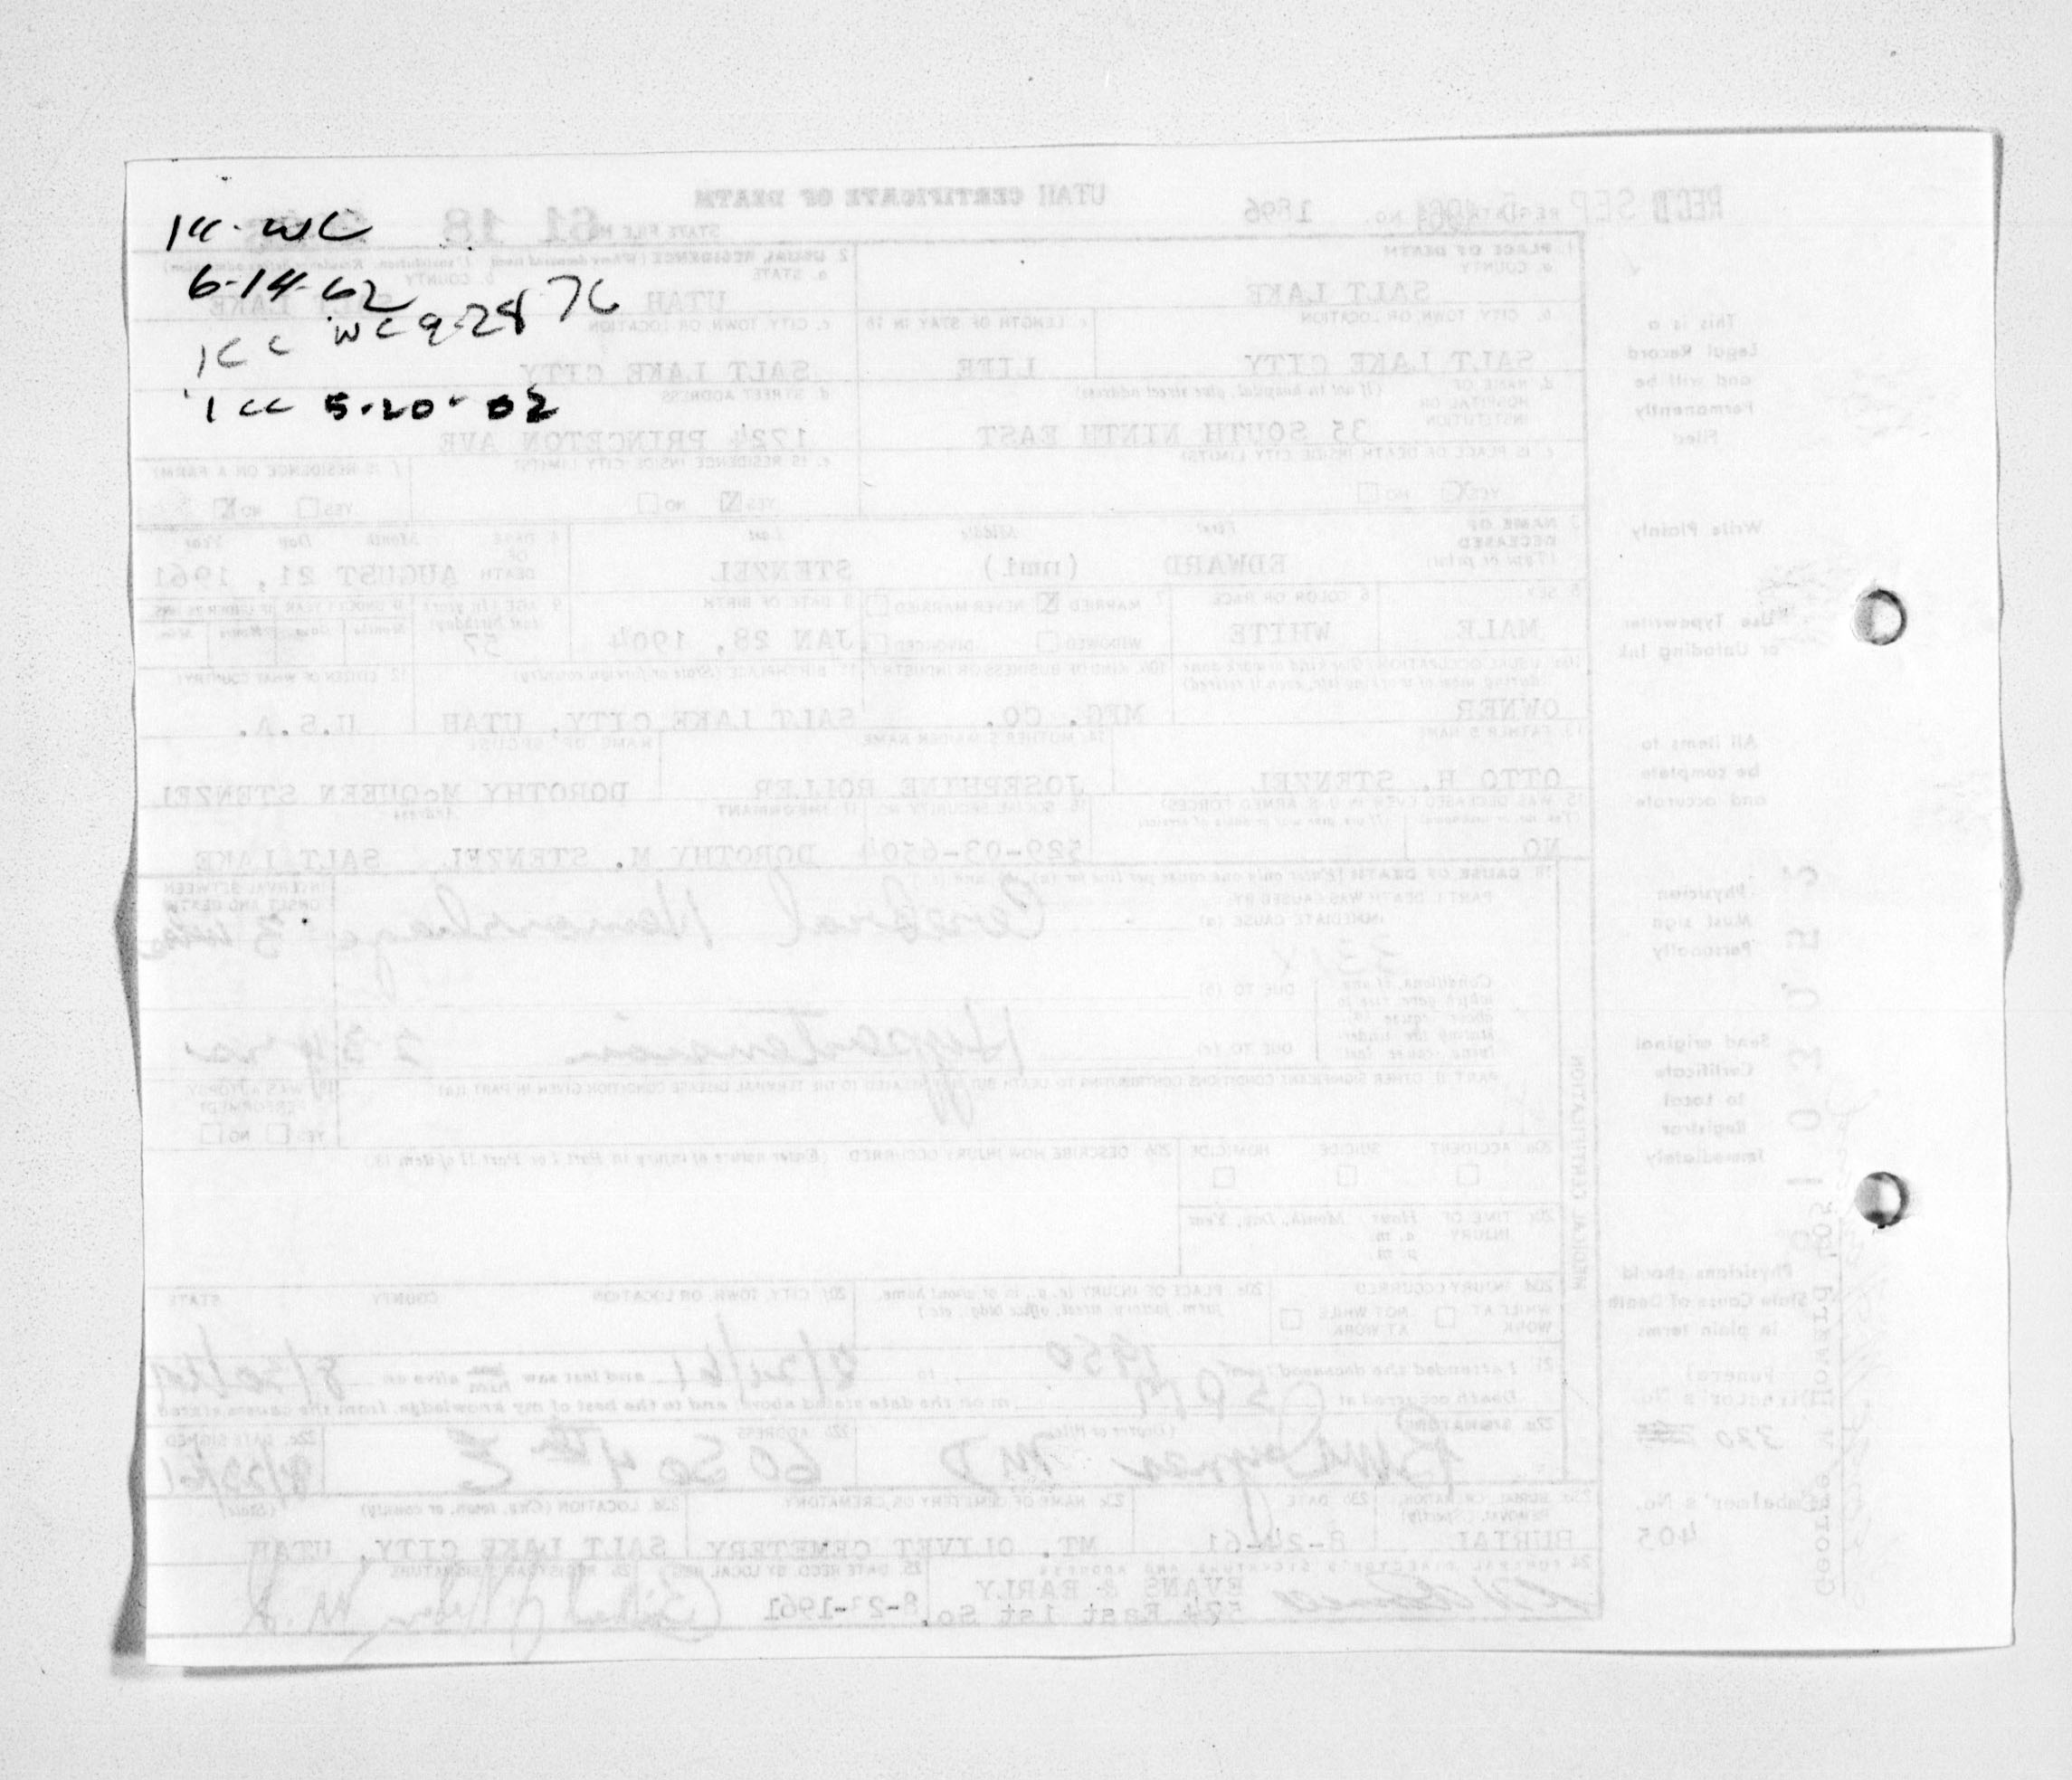 1cc. WC
6-14-62
1cc WC 9-28 76
1cc 5-20-02
REC'D SEP 5 1961
REGISTRAR'S NO. 1896
UTAH CERTIFICATE OF DEATH
STATE FILE NO. 61 18
1. PLACE OF DEATH
a. COUNTY
SALT LAKE
2. USUAL RESIDENCE (Where deceased lived. If institution: Residence before admission)
a. STATE
UTAH
b. COUNTY
SALT LAKE
b. CITY, TOWN, OR LOCATION
SALT LAKE CITY
c. LENGTH OF STAY IN 1b
LIFE
c. CITY, TOWN, OR LOCATION
SALT LAKE CITY
d. NAME OF HOSPITAL OR INSTITUTION
(If not in hospital, give street address)
35 SOUTH NINTH EAST
d. STREET ADDRESS
1724 PRINCETON AVE
e. IS PLACE OF DEATH INSIDE CITY LIMITS?
YES NO
e. IS RESIDENCE INSIDE CITY LIMITS?
YES NO
f. IS RESIDENCE ON A FARM?
YES NO
3. NAME OF DECEASED
(Type or print)
First Middle Last
EDWARD (nmi) STENZEL
4. DATE OF DEATH
Month Day Year
AUGUST 21, 1961
5. SEX
MALE
6. COLOR OR RACE
WHITE
7. MARRIED NEVER MARRIED
WIDOWED DIVORCED
8. DATE OF BIRTH
JAN 28, 1904
9. AGE (In years last birthday)
57
10a. USUAL OCCUPATION (Give kind of work done during most of working life, even if retired)
OWNER
10b. KIND OF BUSINESS OR INDUSTRY
MFG. CO.
11. BIRTHPLACE (State or foreign country)
SALT LAKE CITY, UTAH
12. CITIZEN OF WHAT COUNTRY?
U.S.A.
13. FATHER'S NAME
OTTO H. STENZEL
14. MOTHER'S MAIDEN NAME
JOSEPHINE BOLLER
NAME OF SPOUSE
DOROTHY McQUEEN STENZEL
15. WAS DECEASED EVER IN U.S. ARMED FORCES?
NO
16. SOCIAL SECURITY NO.
529-03-6504
17. INFORMANT
Address
DOROTHY M. STENZEL SALT LAKE
18. CAUSE OF DEATH [Enter only one cause per line for (a), (b), and (c)]
PART I. DEATH WAS CAUSED BY:
IMMEDIATE CAUSE (a)
Cerebral Hemorrhage
INTERVAL BETWEEN ONSET AND DEATH
331 X
Conditions, if any, which gave rise to above cause (a), stating the underlying cause last.
DUE TO (b)
DUE TO (c)
Hypertension
PART II. OTHER SIGNIFICANT CONDITIONS CONTRIBUTING TO DEATH BUT NOT RELATED TO THE TERMINAL DISEASE CONDITION GIVEN IN PART I(a)
19. WAS AUTOPSY PERFORMED?
YES NO
MEDICAL CERTIFICATION
20a. ACCIDENT SUICIDE HOMICIDE
20b. DESCRIBE HOW INJURY OCCURRED. (Enter nature of injury in Part I or Part II of item 18.)
20c. TIME OF INJURY Hour Month, Day, Year
a. m.
p. m.
20d. INJURY OCCURRED
WHILE AT WORK NOT WHILE AT WORK
20e. PLACE OF INJURY (e. g., in or about home, farm, factory, street, office bldg., etc.)
20f. CITY, TOWN, OR LOCATION COUNTY STATE
21. I attended the deceased from 1950 to 8/21/61 and last saw him alive on
Death occurred at m on the date stated above; and to the best of my knowledge, from the causes stated
22a. SIGNATURE (Degree or title)
MD
22b. ADDRESS
60 So 4th E
22c. DATE SIGNED
8/23/61
23a. BURIAL, CREMATION, REMOVAL (Specify)
BURIAL
23b. DATE
8-24-61
23c. NAME OF CEMETERY OR CREMATORY
MT. OLIVET CEMETERY
23d. LOCATION (City, town, or county) (State)
SALT LAKE CITY, UTAH
24. FUNERAL DIRECTOR'S SIGNATURE AND ADDRESS
EVANS & EARLY
574 East 1st So.
25. DATE REC'D BY LOCAL REG.
8-23-1961
26. REGISTRAR'S SIGNATURE
This is a
Legal Record
and will be
Permanently
Filed
Write Plainly
Use Typewriter
or Unfading Ink
All items to
be complete
and accurate
Physician
Must sign
Personally
Send original
Certificate
to local
Registrar
Immediately
Physicians should
State Cause of Death
in plain terms
Funeral
Director's No.
320
Embalmer's No.
405